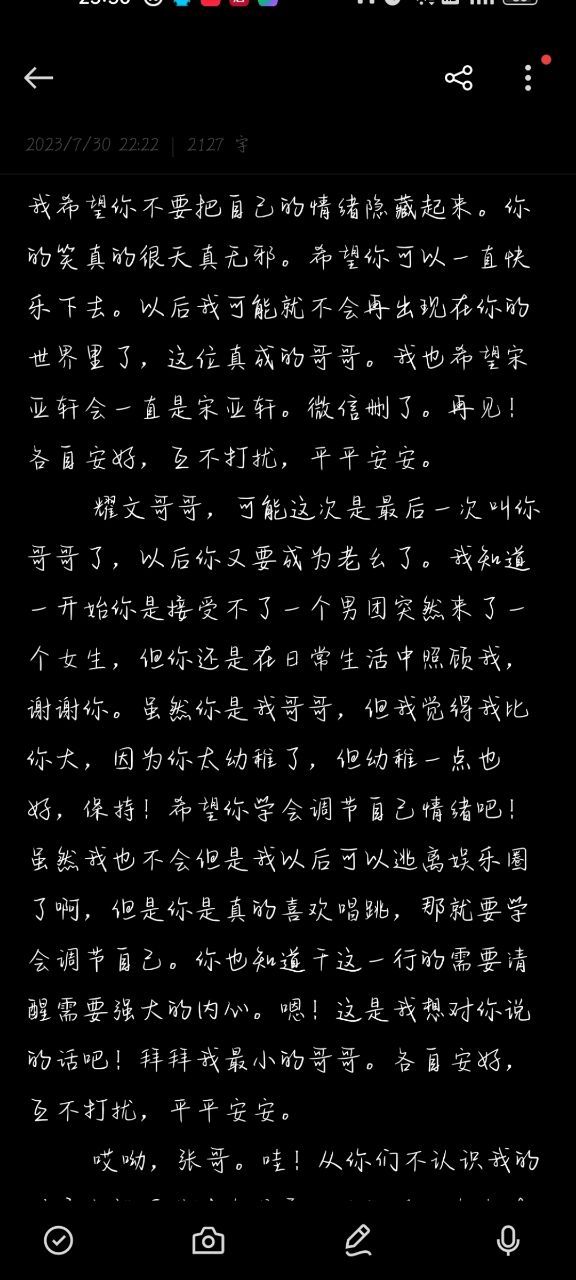 2023/7/30 22:22 | 2127 字
我希望你不要把自己的情绪隐藏起来。你
的笑真的很天真无邪。希望你可以一直快
乐下去。以后我可能就不会再出现在你的
世界里了，这位真成的哥哥。我也希望宋
亚轩会一直是宋亚轩。微信删了。再见！
各自安好，互不打扰，平平安安。
耀文哥哥，可能这次是最后一次叫你
哥哥了，以后你又要成为老幺了。我知道
一开始你是接受不了一个男团突然来了一
个女生，但你还是在日常生活中照顾我，
谢谢你。虽然你是我哥哥，但我觉得我比
你大，因为你太幼稚了，但幼稚一点也
好，保持！希望你学会调节自己情绪吧！
虽然我也不会但是我以后可以逃离娱乐圈
了啊，但是你是真的喜欢唱跳，那就要学
会调节自己。你也知道干这一行的需要清
醒需要强大的内心。嗯！这是我想对你说
的话吧！拜拜我最小的哥哥。各自安好，
互不打扰，平平安安。
哎呦，张哥。哇！从你们不认识我的